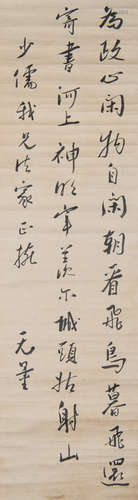 為政心閑物自閑朝看飛鳥暮飛還
寄書河上神明宰羡尔城頭姑射山
少儒我兄法家正撼
无量